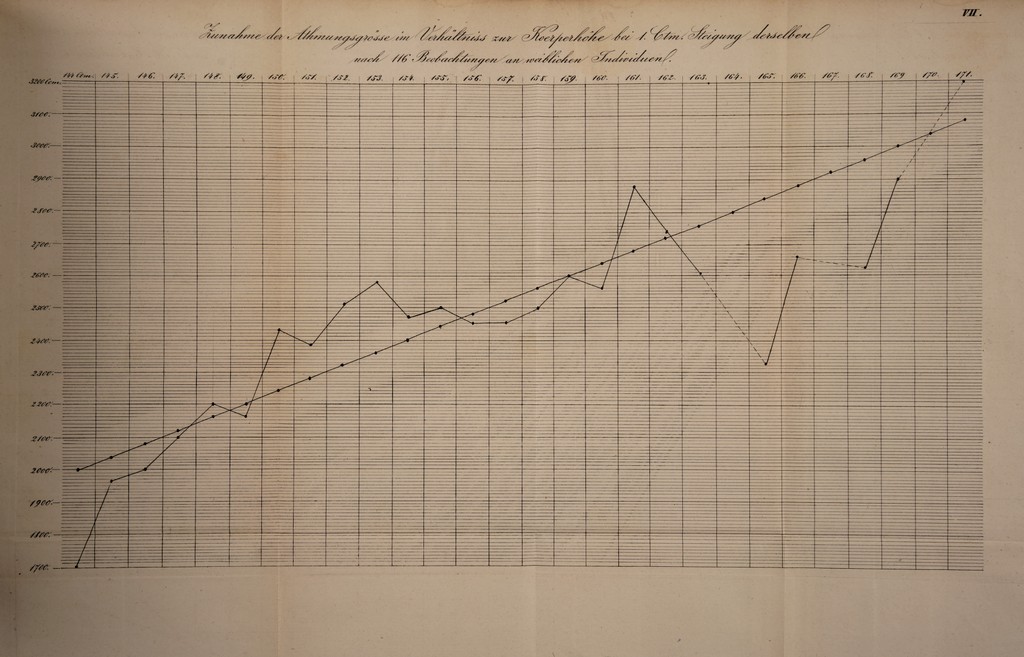 VII.
Zunahme der Athmungsgrösse im Verhältniss zur Koerperhöhe bei 1. Ctm. Steigung derselben
nach 116 Beobachtungen an weiblichen Individuen.
144 Ctm. 145. 146. 147. 148. 149. 150. 151. 152. 153. 154. 155. 156. 157. 158. 159. 160. 161. 162. 163. 164. 165. 166. 167. 168. 169. 170. 171.
3200 Ccm.
3100.
3000.
2900.
2800.
2700.
2600.
2500.
2400.
2300.
2200.
2100.
2000.
1900.
1800.
1700.